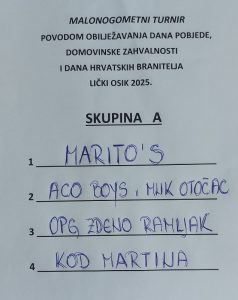 MALONOGOMETNI TURNIR
POVODOM OBILJEŽAVANJA DANA POBJEDE,
DOMOVINSKE ZAHVALNOSTI
I DANA HRVATSKIH BRANITELJA
LIČKI OSIK 2025.
SKUPINA A
1 MARITO'S
2 ACO BOYS i MNK OTOČAC
3 OPG ZDENO RAMLJAK
4 KOD MARTINA